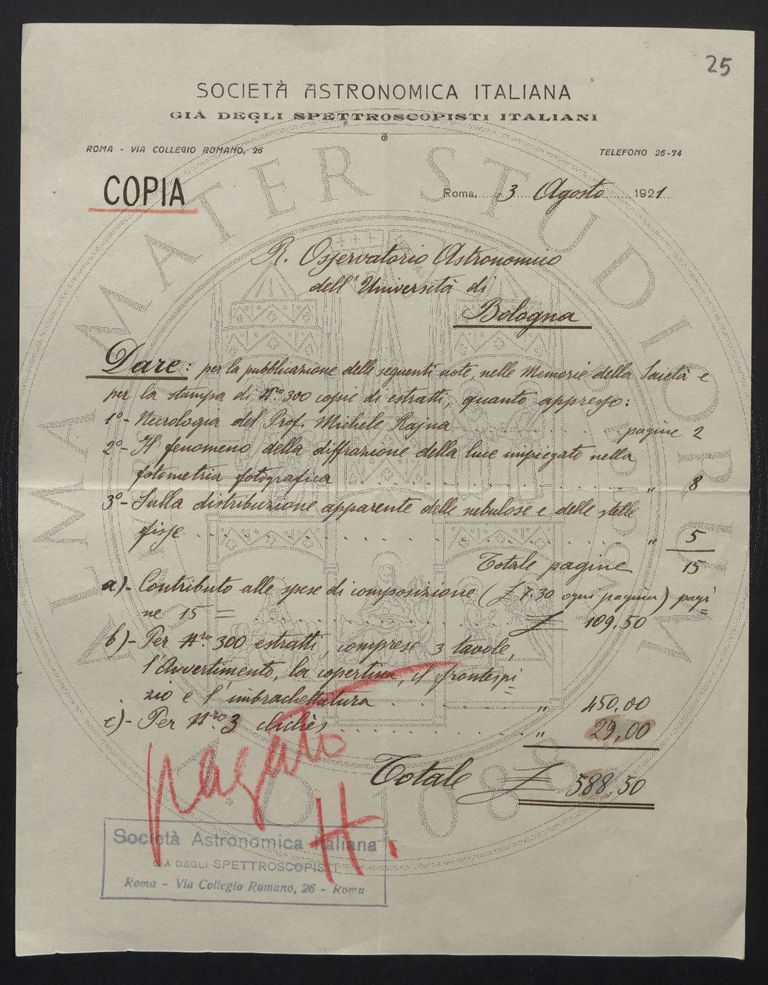 25
SOCIETÀ ASTRONOMICA ITALIANA
GIÀ DEGLI SPETTROSCOPISTI ITALIANI
ROMA - VIA COLLEGIO ROMANO, 26
TELEFONO 26-74
COPIA
Roma, 3 Agosto 1921
R. Osservatorio Astronomico
dell'Università di
Bologna
Dare: per la pubblicazione delle seguenti note, nelle Memorie della Società e
per la stampa di Nro 300 copie di estratti, quanto appresso:
1º- Necrologia del Prof. Michele Rajna . . . . pagine 2
2º- Il fenomeno della diffrazione della luce impiegato nella
fotometria fotografica . . . . " 8
3º- Sulla distribuzione apparente delle nebulose e delle stelle
fisse . . . . " 5
Totale pagine 15
a)- Contributo alle spese di composizione (£ 7.30 ogni pagina) pagi
ne 15 = . . . . £ 109,50
b)- Per Nro 300 estratti, comprese 3 tavole,
l'Avvertimento, la copertina, il frontespi
zio e l'imbrachettatura . . . . " 450,00
c)- Per Nro 3 clichès . . . . " 29,00
Totale £ 588,50
pagato
H.
Società Astronomica Italiana
GIÀ DEGLI SPETTROSCOPISTI
Roma - Via Collegio Romano, 26 - Roma
ALMA MATER STUDIORUM
A.D. 1088